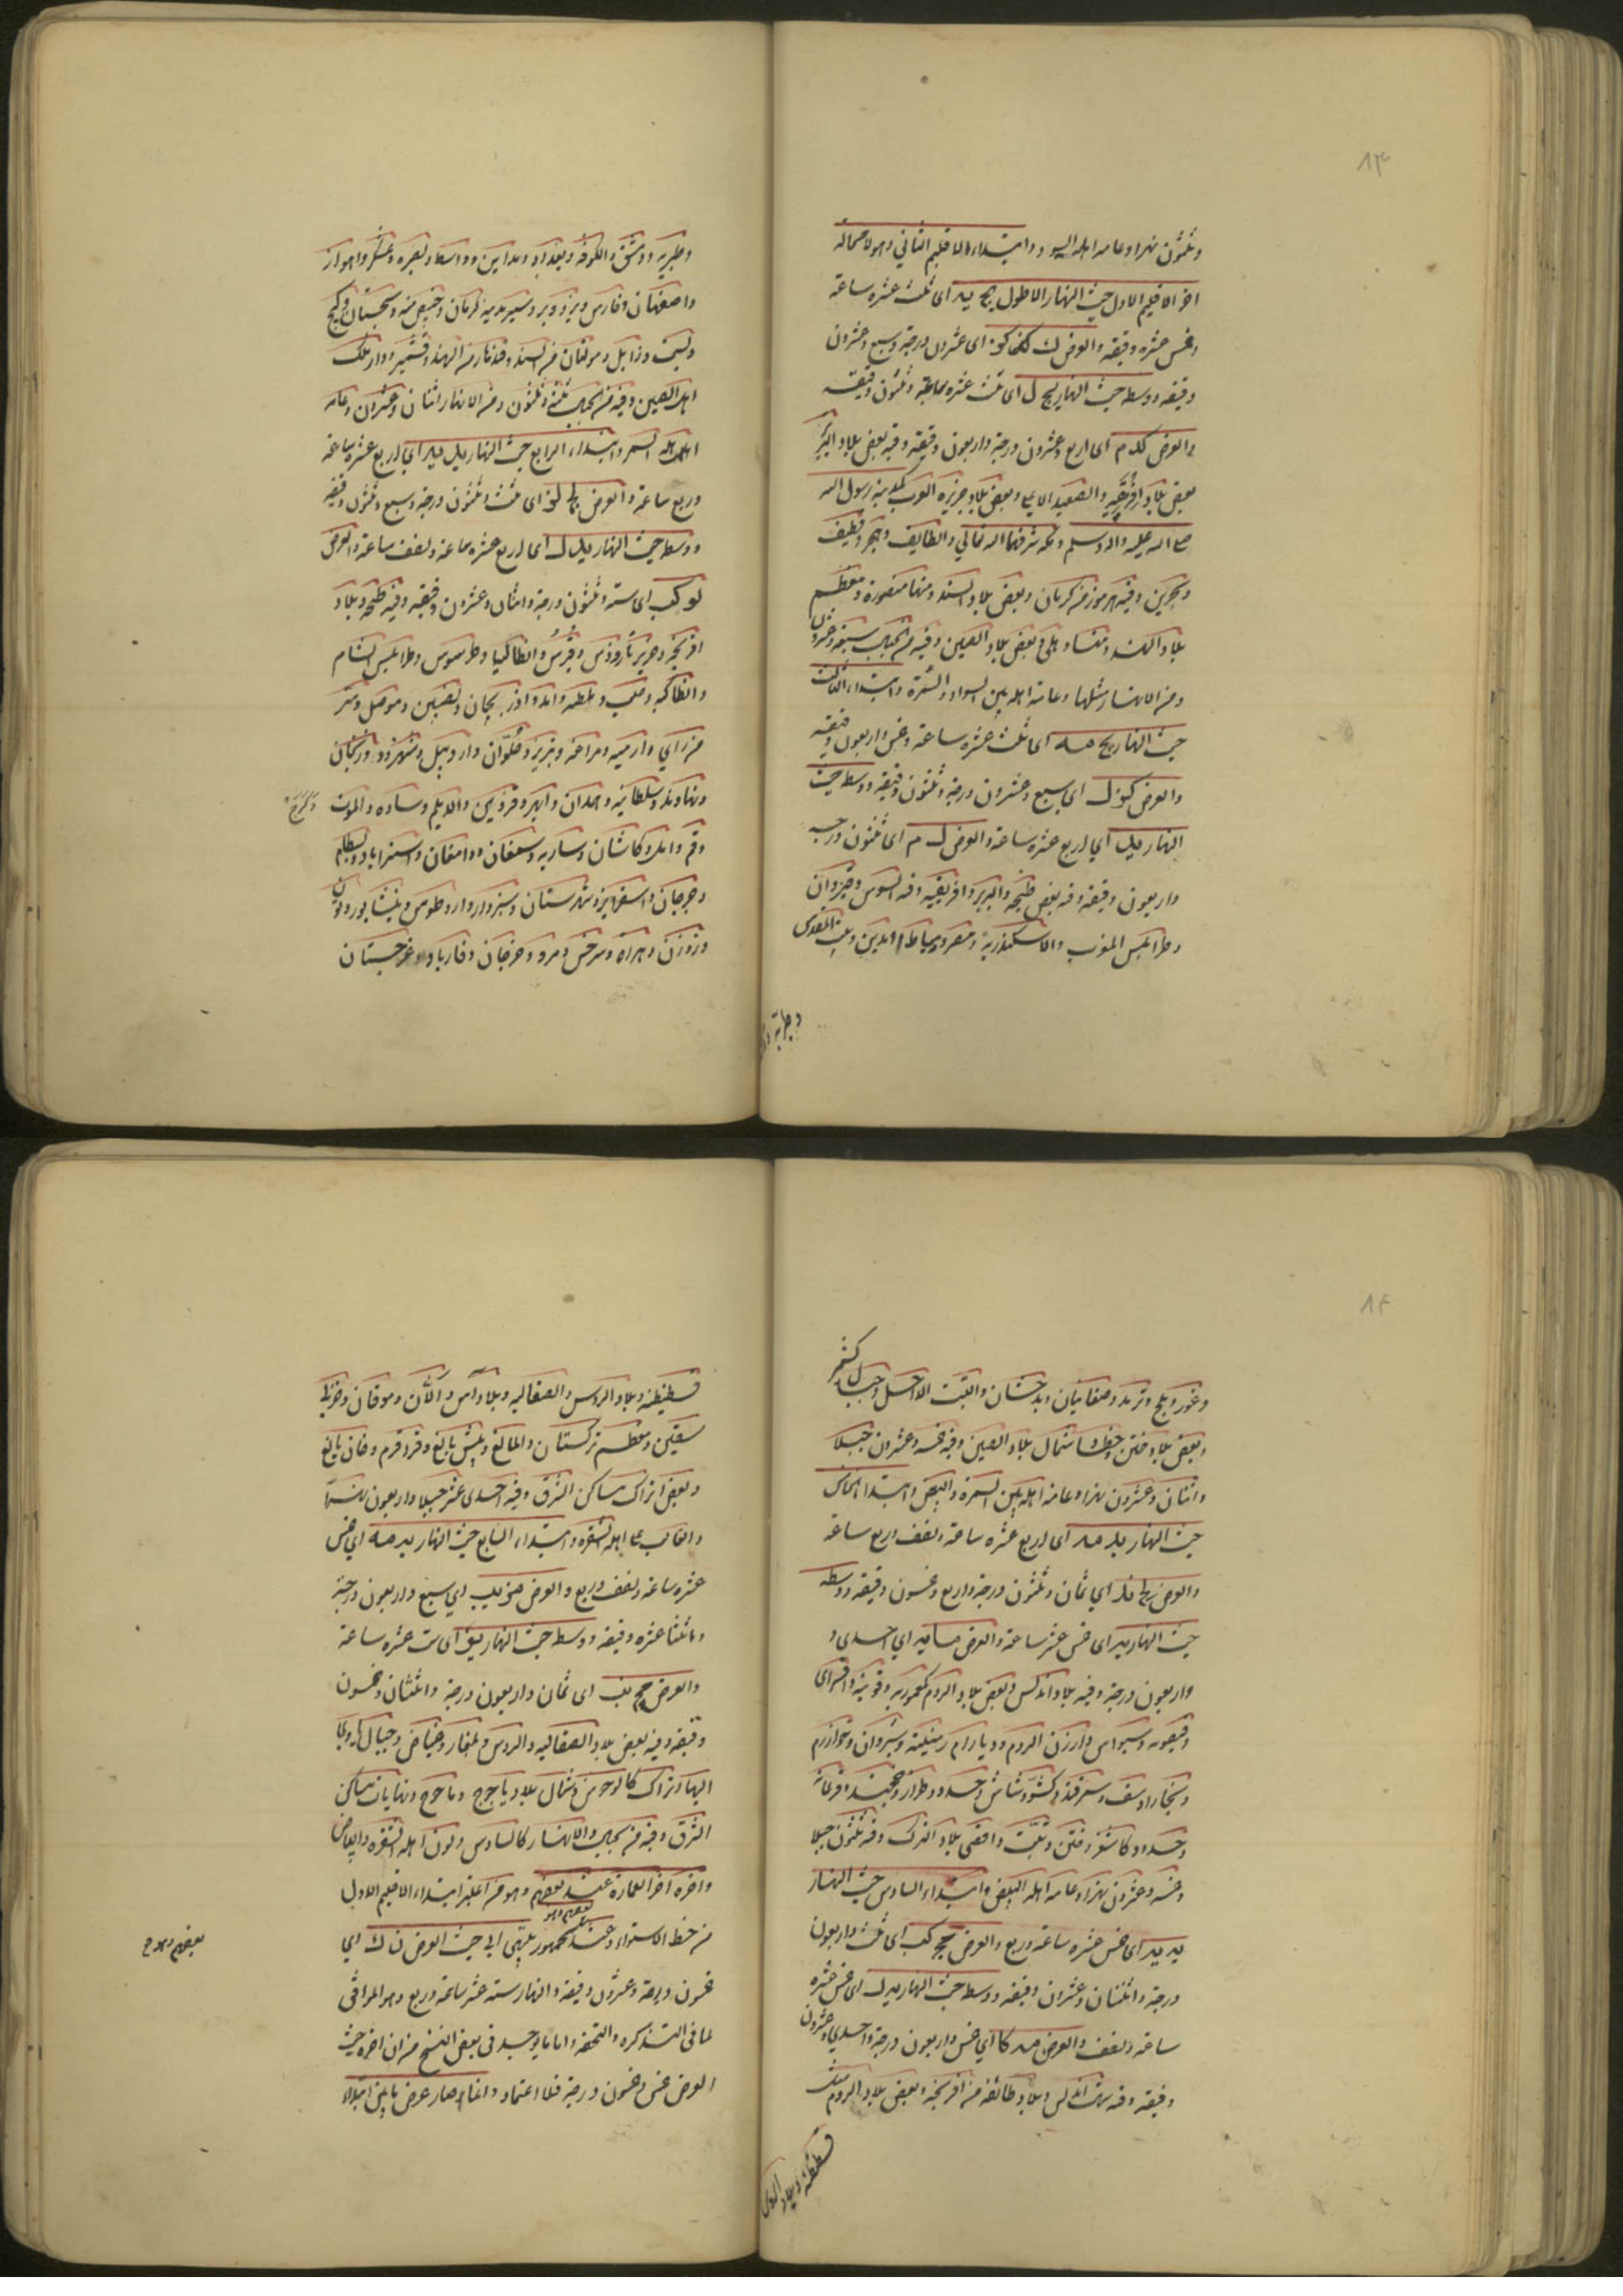 ٨٣
وثلثون نهرا وعامه اهله السود وابتداء الاقليم الثاني وهو لا محاله
اخر الاقليم الاول حيث النهار الاطول يج يه اى ثلث عشره ساعة
وخمس عشره دقيقه والعرض ك كز اى عشرون درجة وسبع وعشرون
دقيقه ووسطه حيث النهار يج ل اى ثلث عشره ساعة وثلثون دقيقه
والعرض كد م اى اربع وعشرون درجة واربعون دقيقة وفيه بعض بلاد البربر
بعض بلاد افريقيه والصعيد الاعلى وبعض بلاد جزيره العرب كمدينه رسول الله
صلى الله عليه واله وسلم ومكه شرفهما الله تعالي والطايف وهجر وقطيف
وبحرين وفيه هرموز من كرمان وبعض بلاد السند ومنها منصوره ومعظم
بلاد الهند وبعض بلاد الصين وفيه من الجبال سبعه وعشرون
ومن الانهار مثلها وعامة اهله بين السواد والسمرة وابتداء الثالث
حيث النهار يج مه اى ثلث عشره ساعة وخمس واربعون دقيقه
والعرض كز ل اى سبع وعشرون درجة وثلثون دقيقه ووسطه حيث
النهار يد اي اربع عشره ساعة والعرض ل م اى ثلثون درجه
واربعون دقيقه وفيه بعض طنجه والبربر وافريقيه وفيه السوس وقيروان
وطرابلس المغرب والاسكندريه ومصر ودمياط ومدين وبيت المقدس
وطبرية
وطبريه ودمشق والكوفه وبغداد ومداين وواسط وبصره وعسكر واهواز
واصفهان وفارس ويزد وبردسير مدينه كرمان وبعض منه وسجستان وكيج
وبست وزابل ومولتان من السند وقندهار من الهند وقشمير ودار ملك
اهل الصين وفيه من الجبال ثلثة وثلثون ومن الانهار اثنان وعشرون وعامه
اهله السمر وابتداء الرابع حيث النهار يد يه اى اربع عشره ساعة
وربع ساعة والعرض لج لز اى ثلث وثلثون درجة وسبع وثلثون دقيقه
ووسطه حيث النهار يد ل اى اربع عشره ساعة ونصف ساعة والعرض
لو كب اى ستة وثلثون درجة واثنان وعشرون دقيقه وفيه طنجه وبلاد
افرنجه وجزيرتا رودس وقبرس وانطاكيا وطرسوس وطرابلس الشام
وانطاكيه وحلب وملطيه وامد واذربيجان ونصيبين وموصل وسر
من راي وارميه ومراغه وتبريز وحلوان واردبيل وشهرزور وزنجان
ونهاوند وسلطانيه وهمدان وابهر وقزوين والديلم وساوه والموت
وكرج
وقم وامل وكاشان وساريه وسمنان ودامغان واستراباد وبسطام
وجرجان واسفراين وشهرستان وسبزوار وطوس ونيشابور وتون
وزوزن وهراه وسرخس ومرو وجرجان وفارياب وغرجستان
٨٤
وغور وبلخ وترمد وصغانيان وبدخشان والتبت الداخل وجبال كشمير
وبعض بلاد ختن وخطا وشمال بلاد الصين وفيه خمسه وعشرون جبلا
واثنان وعشرون نهرا وعامه اهله بين السمره والبيض وابتداء الخامس
حيث النهار يد مه اى اربع عشره ساعة ونصف وربع ساعة
والعرض لح ند اى ثمان وثلثون درجة واربع وخمسون دقيقه ووسطه
حيث النهار يه اى خمس عشر ساعة والعرض اى احدى و
واربعون درجة وفيه بلاد اندلس وبعض بلاد الروم كعموريه وقونيه واقسراى
وقيصريه وسيواس وارزن الروم وديار ارمينيه وشروان وخوارزم
وبخارا ونسف وسمرقند وكش وشاش وحدود طراز وخجند وفرغانه
وحدود كاشغر وختن وتبت واقصى بلاد الترك وفيه ثلثون جبلا
وخمسه وعشرون نهرا وعامه اهله البيض وابتداء السادس حيث النهار
يه يه اى خمس عشره ساعة وربع والعرض مج كب اى ثلث واربعون
درجة واثنتان وعشرون دقيقه ووسطه حيث النهار يه ل اى خمس عشره
ساعة ونصف والعرض مه كا اى خمس واربعون درجة واحدى وعشرون
دقيقه وفيه شمال اندلس وبلاد طائفة من افرنجه وبعض بلاد الروم مثل
قسطنطنيه وبلاد الروس
قسطنطنيه وبلاد الروس والصقالبه وبلاد آس والان وموقان وخزر
سقين ومعظم تركستان والمالغ وبيش بالغ وقراقرم وخان بالغ
وبعض اتراك مساكن الشرق وفيه احدى عشر جبلا واربعون نهرا
والغالب على اهله الشقره وابتداء السابع حيث النهار يه مه اى خمس
عشره ساعة ونصف وربع والعرض مز يب اى سبع واربعون درجة
واثنتا عشره دقيقه ووسطه حيث النهار يو اى ست عشره ساعة
والعرض مح نب اى ثمان واربعون درجة واثنتان وخمسون
دقيقه وفيه بعض بلاد الصقالبه والروس وبلغار وغياض وجبال ياوي
اليها اتراك كالوحوش وشمال بلاد ياجوج وماجوج ونهايات مساكن
الشرق وفيه من الجبال والانهار كالسادس ولون اهله الشقره والبياض
واخره اخر العمارة عند بعضهم وهو من اعتبر ابتداء الاقليم الاول
من خط الاستواء وعند الجمهور ينتهي الى حيث العرض ن ك اى
بعضهم وهو
بعضهم وهو ح
خمسون درجة وعشرون دقيقه والنهار ستة عشر ساعة وربع وهو الموافق
لما فى التذكره والتحفه واما ما يوجد فى بعض النسخ من ان اخره حيث
العرض خمس وخمسون درجة فلا اعتماد وانما صار عرض ما بين ابتداء